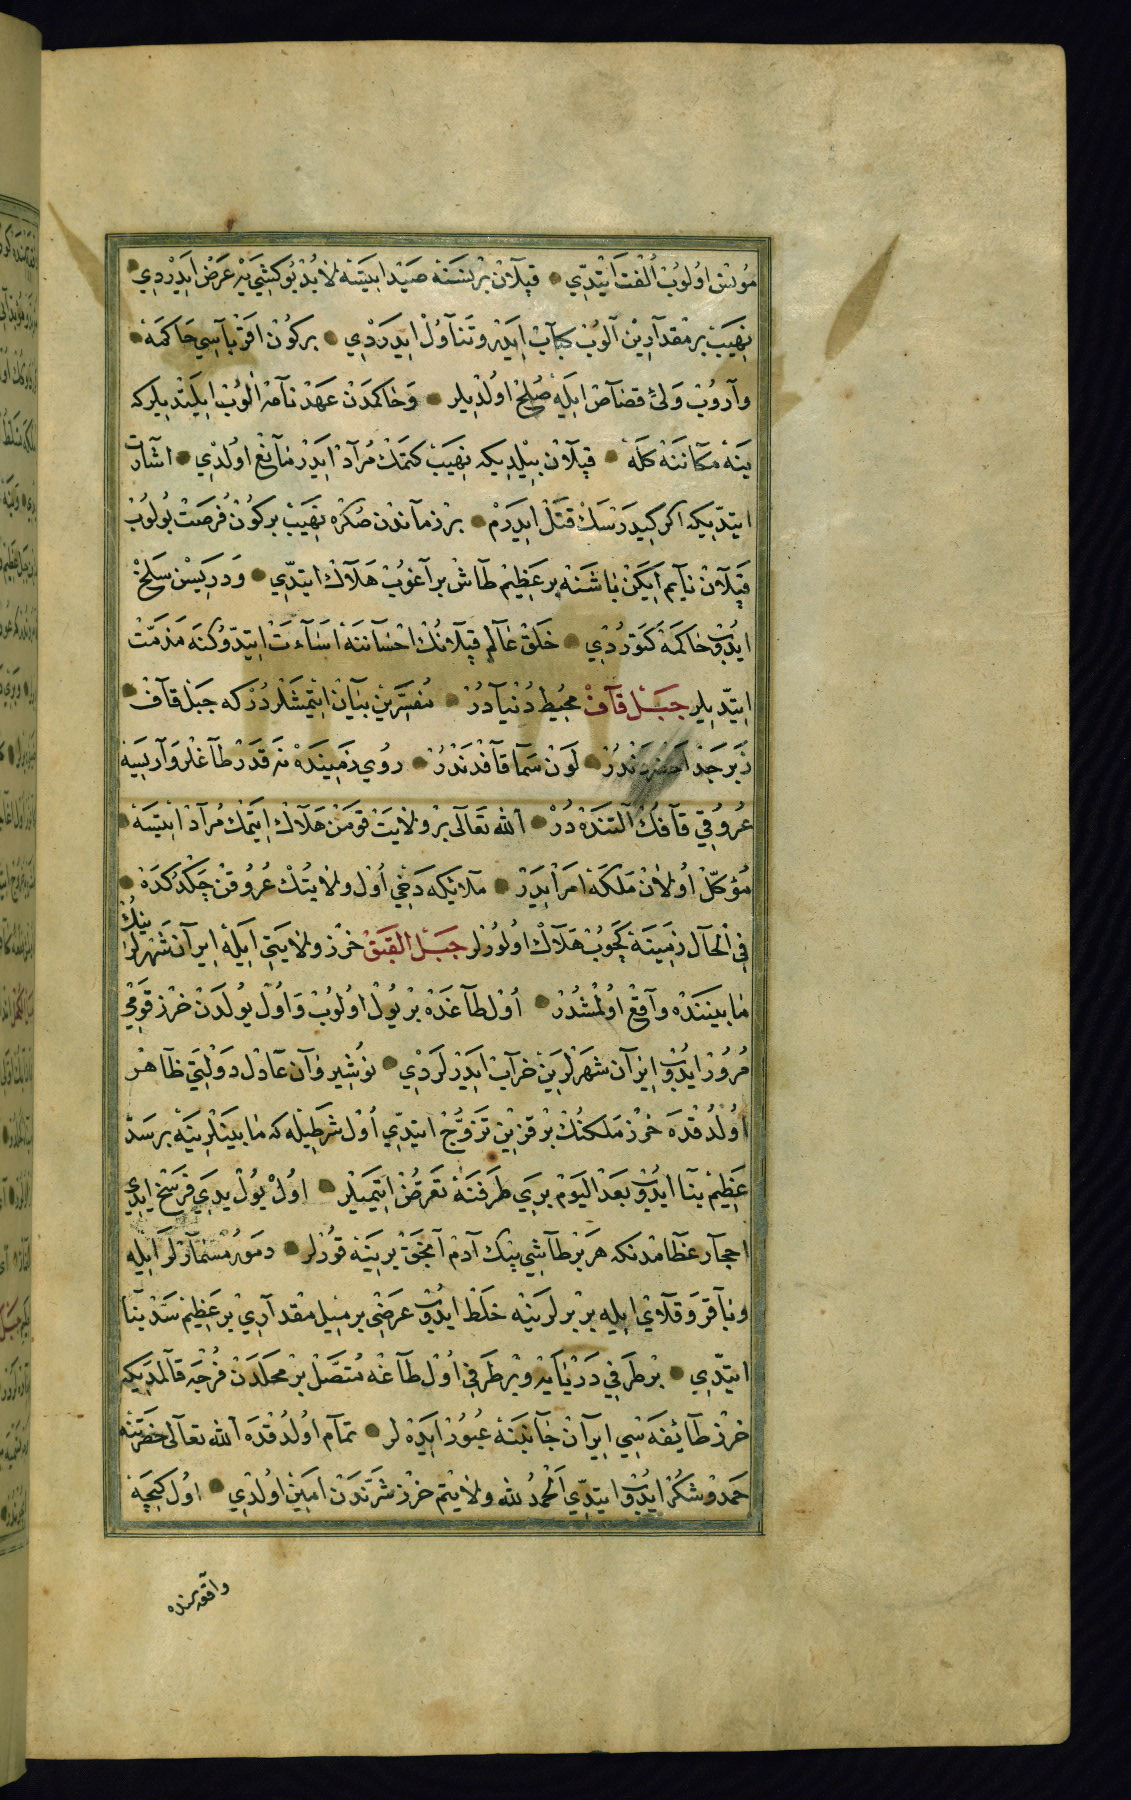 مُونس اولوب الفت ايتدى قپلان بر نسنه صيد ايتسه لابد بو كشى يه عرض ايدردى
نهيب بر مقدارين آلوب كباب ايدر و تناول ايدردى بر كون اقرباسى حاكمه
واروب ولى قصاص ايله صلح اولديلر و حاكمدن عهدنامه الوب ايلتديلر كه
ينه مكاننه كله قپلان بيلديكه نهيب كتمك مراد ايدر مانع اولدى اشارت
ايتديكه اكر كيدرسك قتل ايدرم بر زماندن صكره نهيب بر كون فرصت بولوب
قپلان نايم ايكن باشنه بر عظيم طاش براغوب هلاك ايتدى و دريسن سلخ
ايدوب حاكمه كتوردى خلق عالم قپلانك احساننه اساءت ايتدوكنه مذمت
ايتديلر جبل قاف محيط دنيادر مفسرين بيان ايتمشلردر كه جبل قاف
زبرجد لون سما قافدندر روى زمينده نه قدر طاغلر وار ايسه
عروقى قافك التنده در الله تعالى بر ولايت قومن هلاك ايتمك مراد ايتسه
مؤكل اولان ملكه امر ايدر ملائكه دخى اول ولايتك عروقن چكدكده
فى الحال زمينه كچوب هلاك اولورلر جبل القبق خزر ولايتى ايله ايران شهرلرينك
مابيننده واقع اولمشدر اول طاغده بر يول اولوب و اول يولدن خزر قومى
مرور ايدوب ايران شهرلرين خراب ايدرلردى نوشيروان عادل دولتى ظاهر
اولدقده خزر ملكنك بر قزين تزوج ايتدى اول شرطيله كه مابينلرينه بر سد
عظيم بنا ايدوب بعد اليوم برى طرفنه تعرض ايتميلر اول يول يدى فرسخ ايدى
احجار عظامدنكه هر بر طاشى بيك آدم انجق يرينه قورلر دمور مسمارلر ايله
و باقر و قلاى ايله بر برلرينه خلط ايدوب عرضى بر ميل مقدارى بر عظيم سد بنا
ايتدى بر طرفى دريايه و بر طرفى اول طاغه متصل بر محلدن فرجه قالمديكه
خزر طائفه سى ايران جانبنه عبور ايده لر تمام اولدقده الله تعالى حضرتنه
حمد و شكر ايدوب ايتدى الحمد لله ولايتم خزر شرندن امين اولدى اول كيجه
واقعه سنده